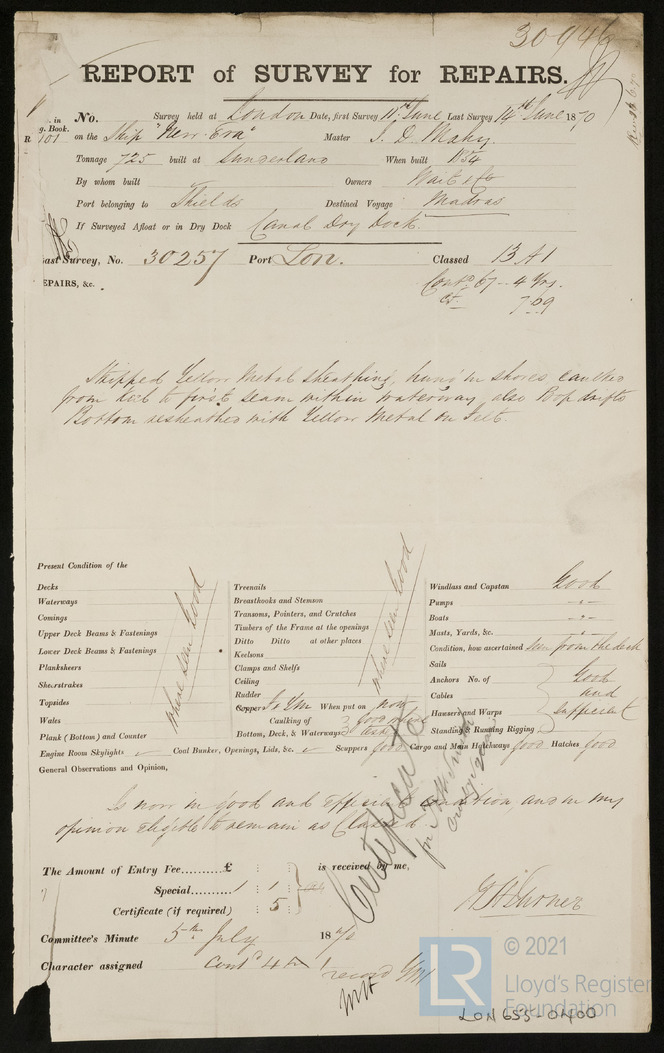 30946
REPORT of SURVEY for REPAIRS.
No. in g. Book. No. Survey held at London Date, first Survey 11th June Last Survey 14th June 1870
R 101 on the Ship "Merr Eva" Master
Tonnage 725 built at Sunderland When built 1854
By whom built Owners Wait & Co
Port belonging to Shields Destined Voyage Madras
If Surveyed Afloat or in Dry Dock Canal Dry Dock
ast Survey, No. 30257 Port Lon. Classed 13 A1
EPAIRS, &c. Contd 67 - 4 Yrs.
7.69
Stripped Yellow Metal sheathing, hung in shores caulked
from keel to first seam within waterway also Poop drifts
Bottom resheathed with Yellow Metal on Felt.
Present Condition of the
Decks
Waterways
Comings
Upper Deck Beams & Fastenings
Lower Deck Beams & Fastenings
Planksheers
Sheerstrakes
Topsides
Wales
Plank (Bottom) and Counter
where seen Good
Treenails
Breasthooks and Stemson
Transoms, Pointers, and Crutches
Timbers of the Frame at the openings
Ditto Ditto at other places
Keelsons
Clamps and Shelfs
Ceiling
Rudder
Copper Is YM When put on now
Caulking of
Bottom, Deck, & Waterways
where seen Good
Windlass and Capstan Good
Pumps - " -
Boats - " -
Masts, Yards, &c. - " -
Condition, how ascertained seen from the deck
Sails
Anchors No. of Good
Cables and
Hawsers and Warps sufficient
Standing & Running Rigging
Engine Room Skylights Coal Bunker, Openings, Lids, &c. Scuppers good Cargo and Main Hatchways good Hatches good
General Observations and Opinion,
Is now in good and efficient condition, and in my
opinion eligible to remain as Classed
The Amount of Entry Fee.......... £ : : is received by me,
Special........ 1 : 1 :
Certificate (if required) : 5 :
Certificate
Committee's Minute 5th July 1870
Character assigned Contd 4
record YM
© 2021
LR
Lloyd's Register
Foundation
LON 655-0400